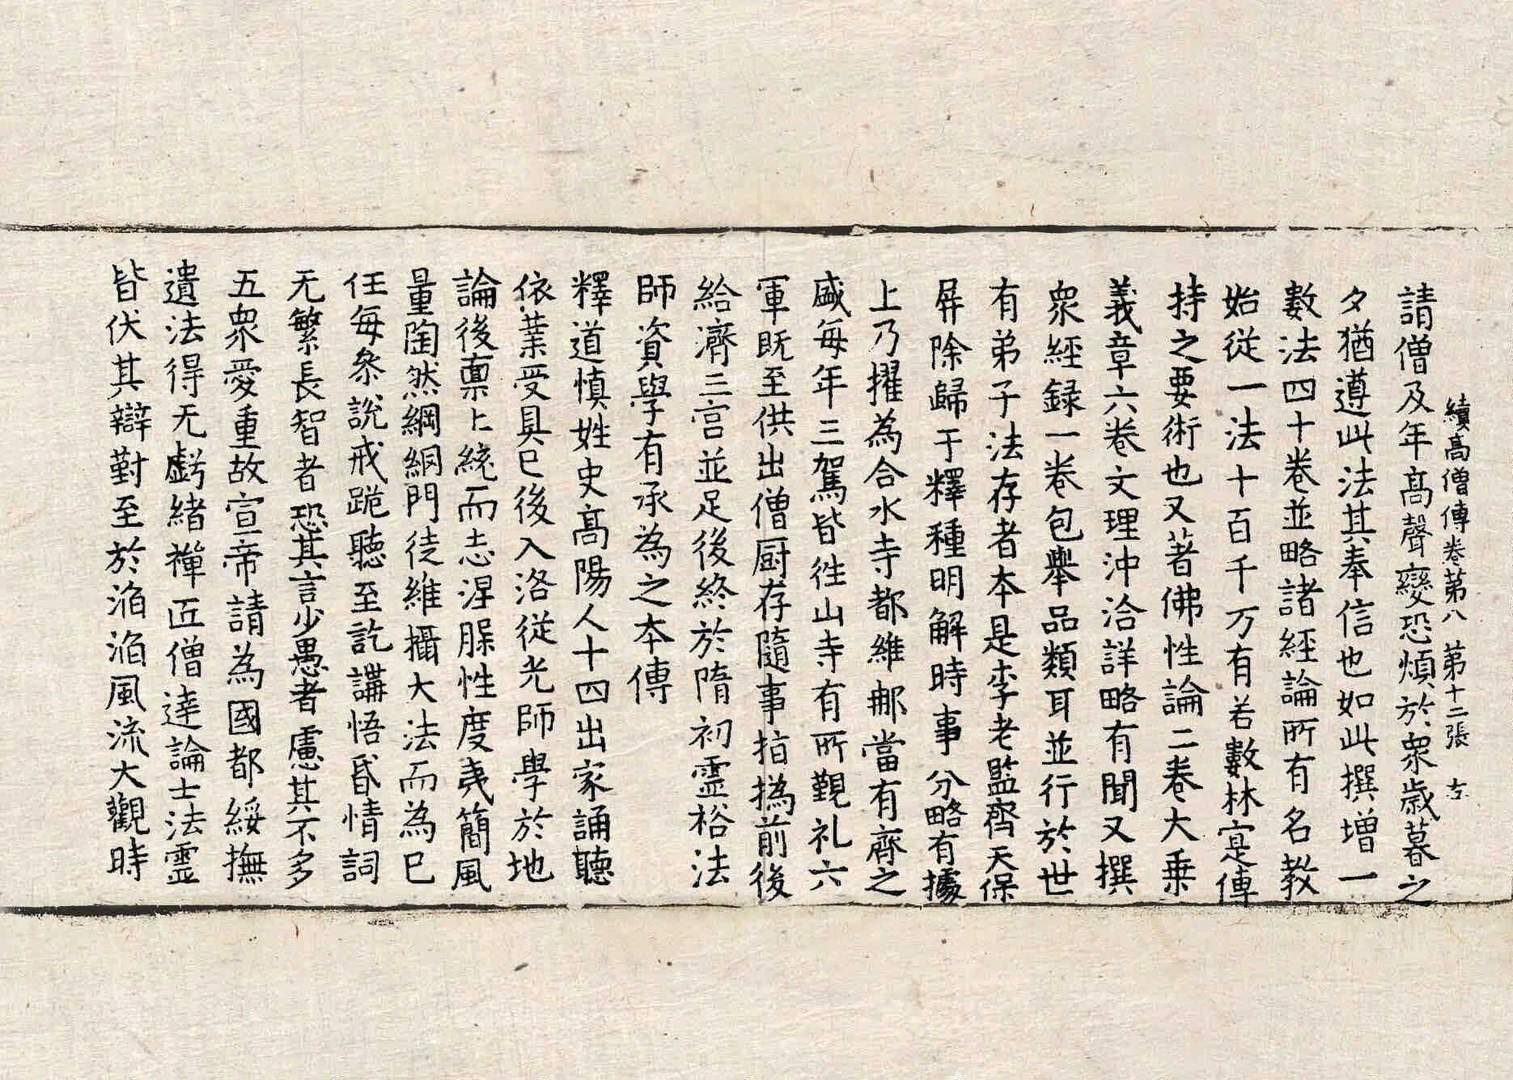 續高僧傳卷第八 第十二張 左
請僧及年高聲變恐煩於衆歲暮之
夕猶遵此法其奉信也如此撰增一
數法四十卷並略諸經論所有名教
始從一法十百千万有若數林寔傳
持之要術也又著佛性論二卷大乗
義章六卷文理沖洽詳略有聞又撰
衆經録一卷包舉品類耳並行於世
有弟子法存者本是李老監齊天保
屏除歸于釋種明解時事分略有據
上乃擢為合水寺都維那當有齊之
盛每年三駕皆徃山寺有所覲礼六
軍既至供出僧厨存隨事指撝前後
給濟三宫並足後終於隋初霊裕法
師資學有承為之本傳
釋道慎姓史髙陽人十四出家誦聽
依業受具已後入洛從光師學於地
論後禀上統而志涅槃性度夷簡風
量陶然綱網門徒維攝大法而為已
任每叅說戒跪聽至訖講悟昏情詞
无繁長智者恐其言少愚者慮其不多
五衆愛重故宣帝請為國都綏撫
遺法得无虧緒禪匠僧達論士法霊
皆伏其辯對至於滔滔風流大觀時